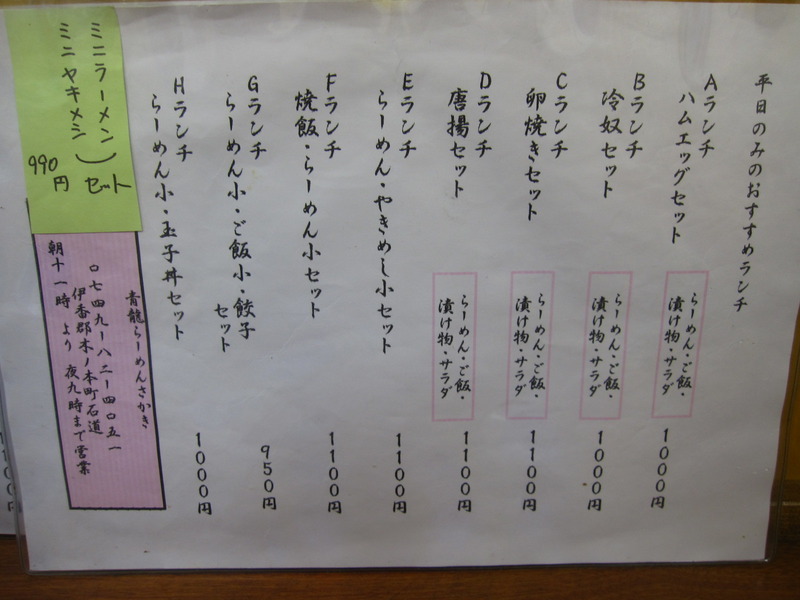 平日のみのおすすめランチ
Aランチ
ハムエッグセット
らーめん・ご飯・
漬け物・サラダ
1000円
Bランチ
冷奴セット
らーめん・ご飯・
漬け物・サラダ
1000円
Cランチ
卵焼きセット
らーめん・ご飯・
漬け物・サラダ
1100円
Dランチ
唐揚セット
らーめん・ご飯・
漬け物・サラダ
1100円
Eランチ
らーめん・やきめし小セット
1100円
Fランチ
焼飯・らーめん小セット
1100円
Gランチ
らーめん小・ご飯小・餃子
セット
950円
Hランチ
らーめん小・玉子丼セット
1000円
ミニラーメン
ミニヤキメシ
セット
990円
青龍らーめんさかき
〇七四九ー八二ー四〇五一
伊香郡木ノ本町石道
朝十一時 より 夜九時まで営業